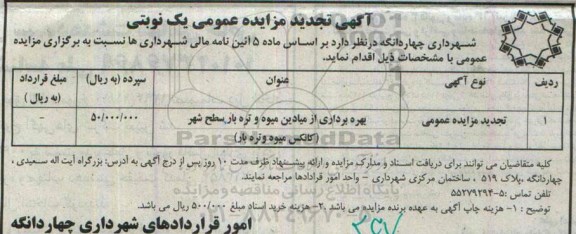 آگهی تجدید مزایده عمومی یک نوبتی
شهرداری چهاردانگه درنظر دارد بر اساس ماده ۵ آئین نامه مالی شهرداری ها نسبت به برگزاری مزایده
عمومی با مشخصات ذیل اقدام نماید.
ردیف نوع آگهی عنوان سپرده (به ریال) مبلغ قرارداد (به ریال)
۱ تجدید مزایده عمومی بهره برداری از میادین میوه و تره بار سطح شهر ۵۰/۰۰۰/۰۰۰ -
(کانکس میوه وتره بار)
کلیه متقاضیان می توانند برای دریافت اسناد و مدارک مزایده و ارائه پیشنهاد ظرف مدت ۱۰ روز پس از درج آگهی به آدرس: بزرگراه آیت اله سعیدی ،
چهاردانگه ،پلاک ۵۱۹ ، ساختمان مرکزی شهرداری - واحد امور قراردادها مراجعه نمایند.
تلفن تماس :۵-۵۵۲۷۹۲۹۳
توضیح : ۱- هزینه چاپ آگهی به عهده برنده مزایده می باشد .۲- هزینه خرید اسناد مبلغ ۵۰۰/۰۰۰ ریال می باشد.
امور قراردادهای شهرداری چهاردانگه